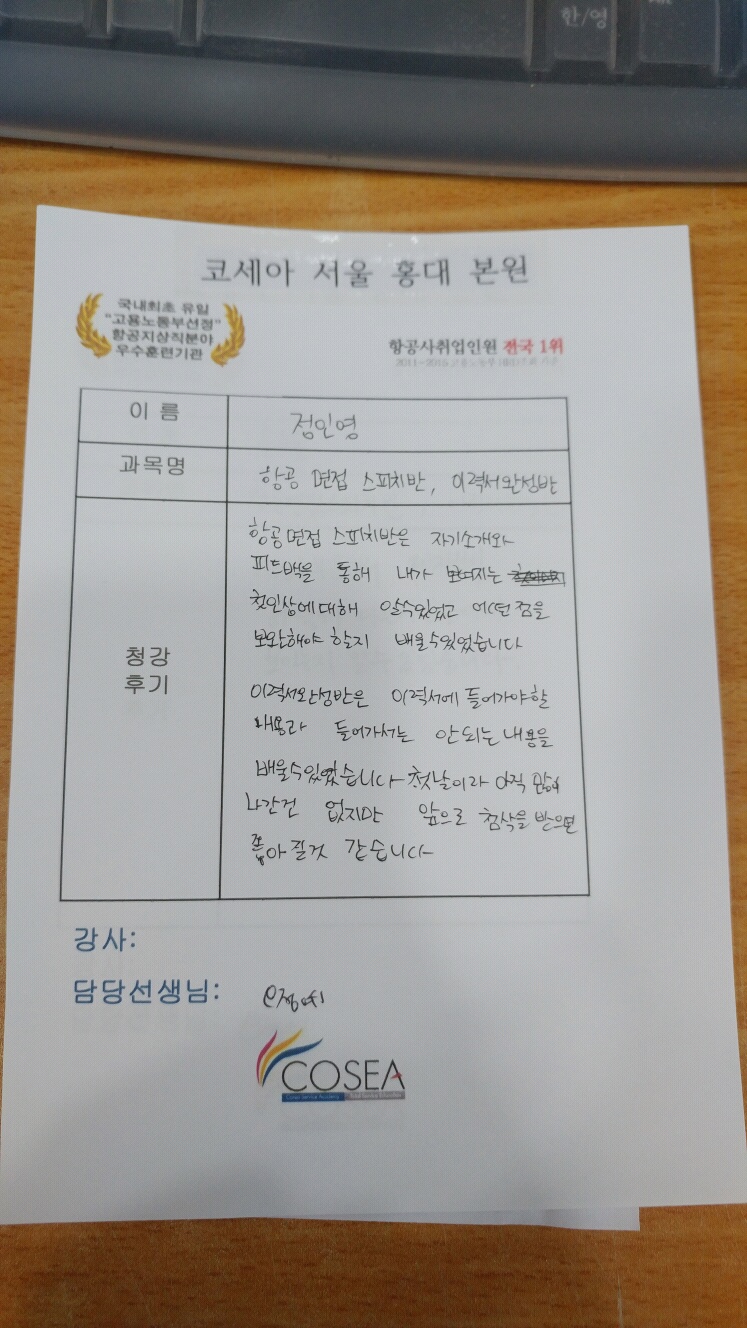 한/영
코세아 서울 홍대 본원
국내최초 유일
"고용노동부선정"
항공지상직분야
우수훈련기관
항공사취업인원 전국 1위
이 름
정인영
과목명
항공 면접 스피치반, 이력서완성반
청강
후기
항공면접 스피치반은 자기소개와
피드백을 통해 내가 보여지는
첫인상에대해 알수있었고 어떤점을
보완해야 할지 배울수있었습니다
이력서완성반은 이력서에 들어가야할
내용과 들어가서는 안되는내용을
배울수있었습니다 첫날이라 아직 많이
나간건 없지만 앞으로 첨삭을 받으면
좋아질것 같습니다
강사:
담당선생님:
COSEA